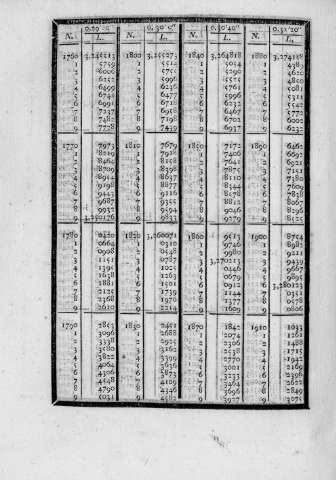 0.29'20" 0.30'0" 0.30'40" 0.31'20"
N. L. N. L. N. L. N. L.
1760 3,245513 1800 3,255273 1840 3,264818 1880 3,274158
1 5759 1 5514 1 5054 1 4389
2 6006 2 5755 2 5290 2 4620
3 6252 3 5996 3 5525 3 4850
4 6499 4 6236 4 5761 4 5081
5 6745 5 6477 5 5996 5 5311
6 6991 6 6718 6 6232 6 5542
7 7237 7 6958 7 6467 7 5772
8 7482 8 7198 8 6702 8 6002
9 7728 9 7439 9 6937 9 6232
1770 7973 1810 7679 1850 7172 1890 6462
1 8219 1 7918 1 7406 1 6692
2 8464 2 8158 2 7641 2 6921
3 8709 3 8398 3 7875 3 7151
4 8954 4 8637 4 8110 4 7380
5 9198 5 8877 5 8344 5 7609
6 9443 6 9116 6 8578 6 7838
7 9687 7 9355 7 8812 7 8067
8 9932 8 9594 8 9046 8 8296
9 3,250176 9 9833 9 9279 9 8525
1780 0420 1820 3,260071 1860 9513 1900 8754
1 0664 1 0310 1 9746 1 8982
2 0908 2 0548 2 9980 2 9211
3 1151 3 0787 3 3,270213 3 9439
4 1395 4 1025 4 0446 4 9667
5 1638 5 1263 5 0679 5 9895
6 1881 6 1501 6 0912 6 3,280123
7 2125 7 1739 7 1144 7 0351
8 2368 8 1976 8 1377 8 0578
9 2610 9 2214 9 1609 9 0806
1790 2853 1830 2451 1870 1842 1910 1033
1 3096 1 2688 1 2074 1 1261
2 3338 2 2925 2 2306 2 1488
3 3580 3 3162 3 2538 3 1715
4 3822 4 3399 4 2770 4 1942
5 4064 5 3636 5 3001 5 2169
6 4306 6 3873 6 3233 6 2396
7 4548 7 4109 7 3464 7 2622
8 4790 8 4346 8 3696 8 2849
9 5031 9 4582 9 3927 9 3075